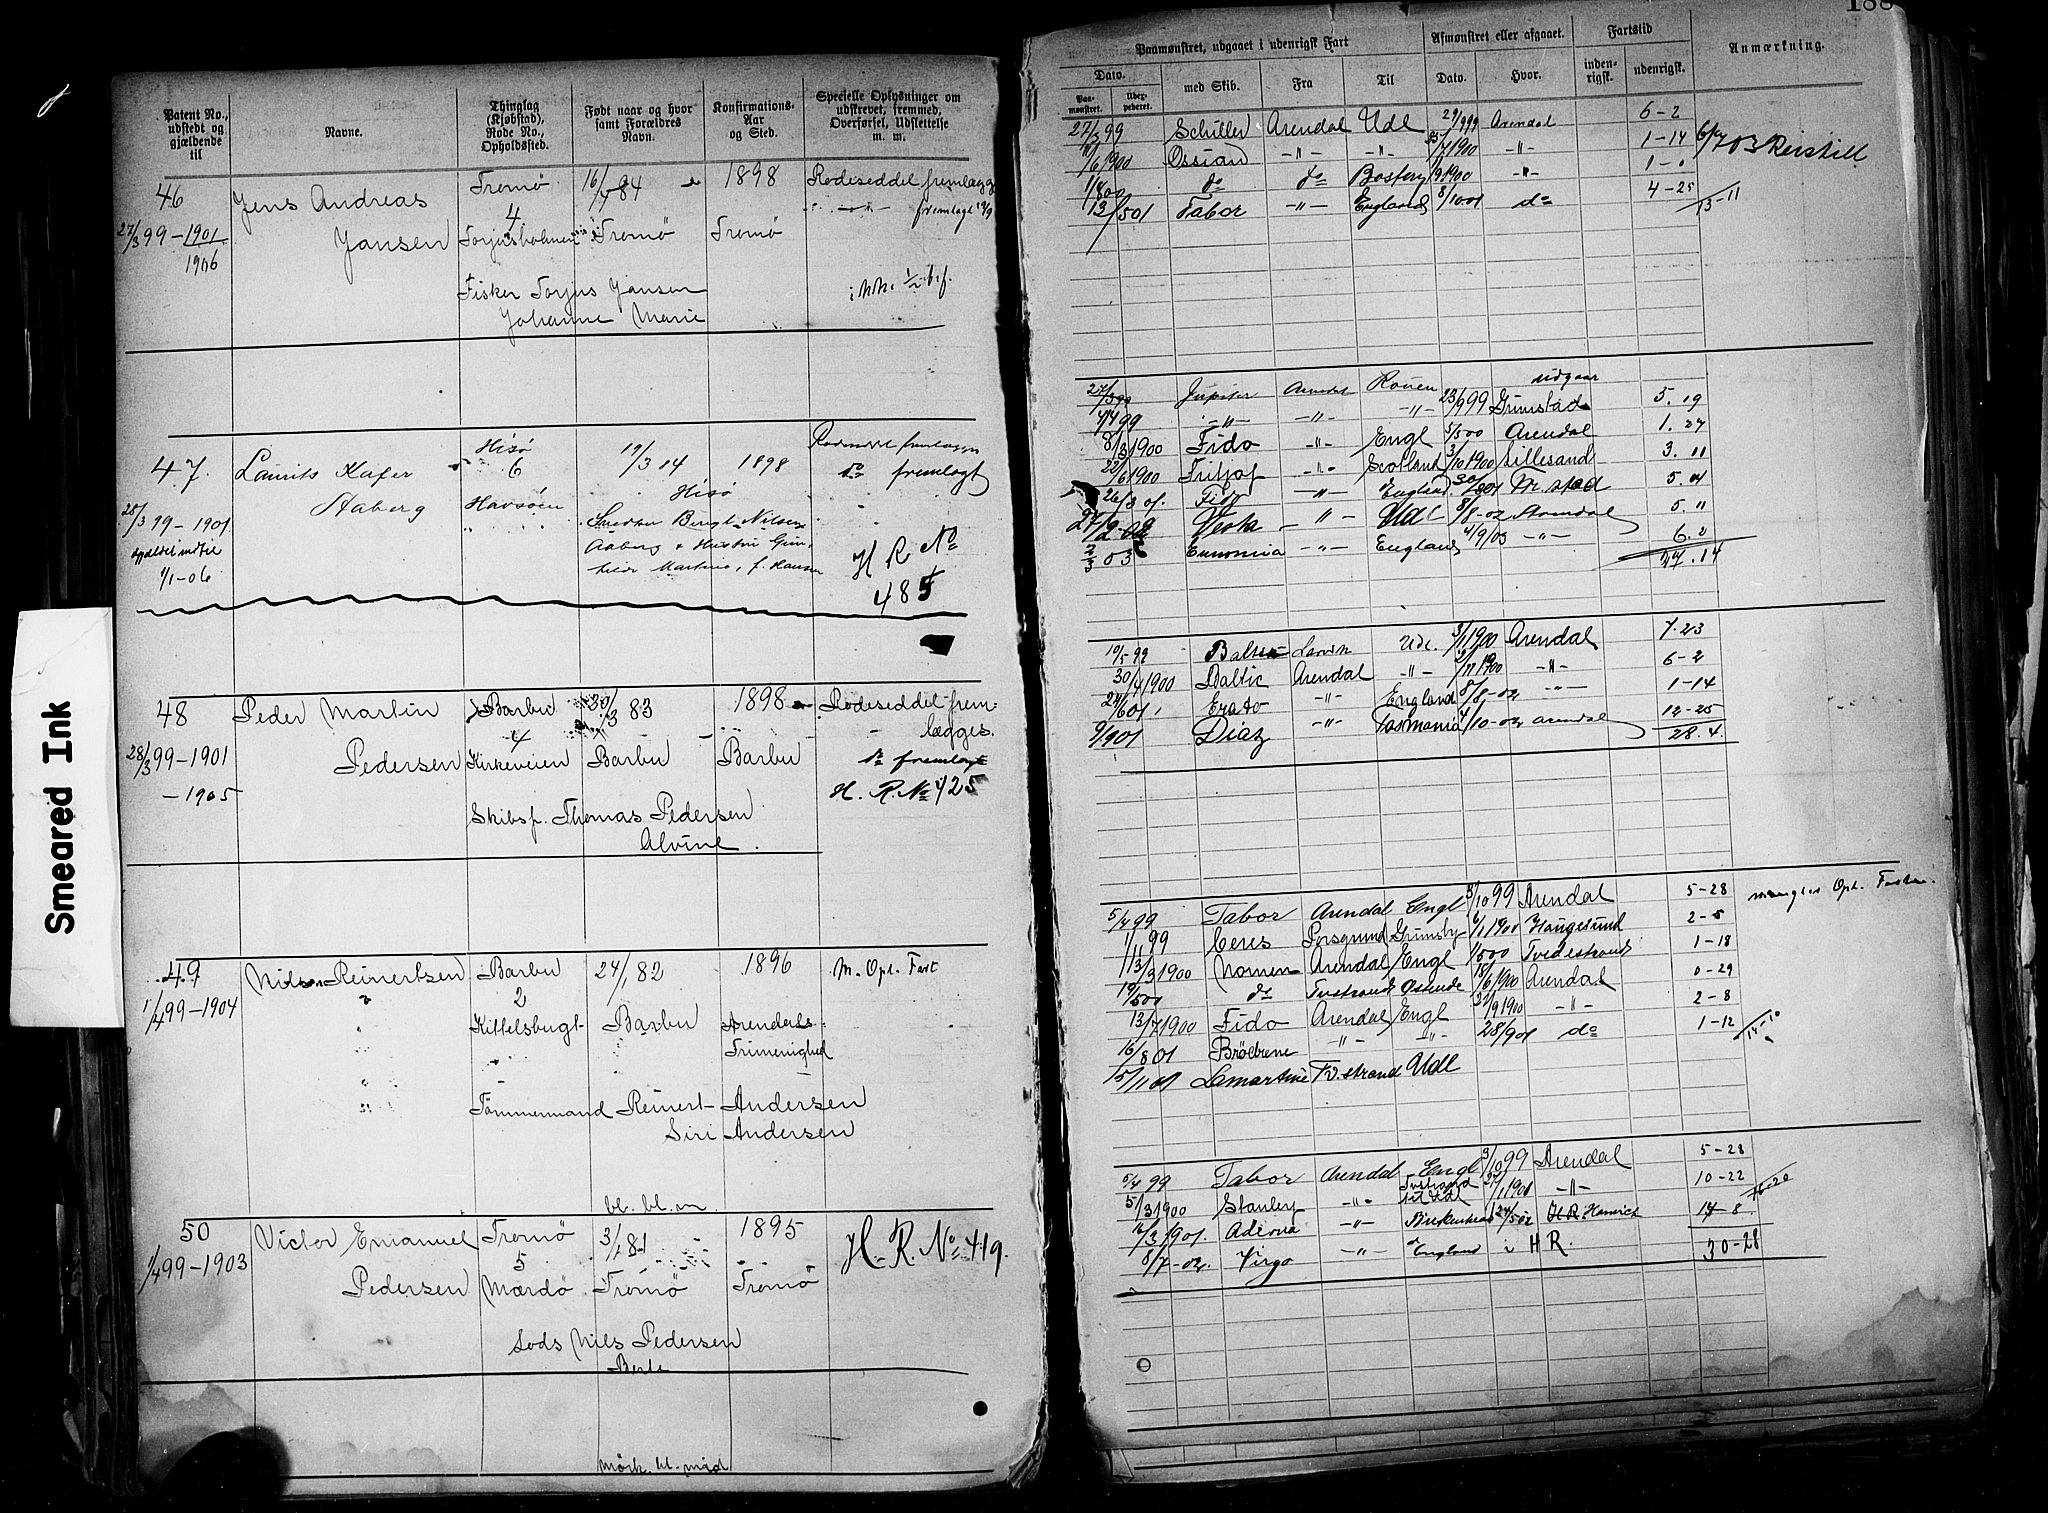 188
Smeared Ink
Patent No., udstedt og gjældende til
Navne.
Thinglag (Kjøbstad), Rode No., Opholdssted.
Født naar og hvor samt Forældres Navn.
Konfirmations-Aar og Sted.
Specielle Oplysninger om udskrevet, fremmed, Overførsel, Udslettelse m. m.
46
Jens Andreas
Tromø
16/7 84
1898
Rodeseddel fremlægges
4
fremlagt
27/3 99-1901
Jansen
Torjusholmen
Tromø
Tromø
1906
Fisker Torjus Jansen
Johanne Marie
47.
Laurits Kafer
Hisø
6
19/3 84
1898
fremlagt
28/3 99-1901
Aaberg
Havsøen
Hisø
gjældet indtil
1/1-06
Smeden Bengt Nilsen
Aaberg & Hustru Gun-
hilde Martine, f. Hansen
H R No
485
48
Peder Martin
Barbu
30/3 83
1898
Rodeseddel frem-
lægges.
4
28/3 99-1901
Pedersen
Kirkeveien
Barbu
Barbu
do fremlagt
-1905
H. R. No 425
Skibsf. Thomas Pedersen
Alvine.
49
Nils Reinertsen
Barbu
24/1 82
1896
M. Opt. Fart
1/4 99-1904
2
Kittelsbugt
Barbu
Arendals
Trimenighed
Tømmermand Reinert Andersen
Siri Andersen
bl. bl. m
50
Victor Emanuel
Tromø
3/1 81
1895
H. R. No 419.
1/4 99-1903
5
Pedersen
Mærdø
Tromø
Tromø
Lods Nils Pedersen
Berte
Mörk. bl. mid
Paamønstret, udgaaet i udenrigsk Fart
Afmønstret eller afgaaet.
Fartstid
Anmærkning.
Dato.
med Skib.
Fra
Til
Dato.
Hvor.
inden-rigsk.
udenrigsk.
Paa-mønstret.
Udex-pederet.
27/3 99 Schiller Arendal Udl 29/9 99 Arendal 6-2
1900 Ossian -"- -"- 1900 -"- 1-14
do do 1900 -"-
13/5 01 Tabor -"- England 8/10 01 do 4-25
13-11
27/3 99 Jupiter Arendal Rouen udgaar
4/4 99 -"- -"- -"- 23/9 99 Grimstad 5. 19
8/3 1900 Fido -"- Engl 5/5 00 Arendal 1. 27
22/6 1900 Fritjof -"- Scotland 3/10 1900 Lillesand 3. 11
26/3 01. Fido -"- England 30/8 01 5. 04
27/2-02 -"- Udl 8/8-02 Arendal 5. 11
2/3 03 Eunomia -"- England 4/9/03 -"- 6. 2
27. 14
10/5 99 Baltic Larvik Udl. 3/1 1900 Arendal 7-23
30/4 1900 Baltic Arendal -"- 1900 -"- 6-2
24/6 01 Erato -"- England 8/8-02 -"- 1-14
9/9 01 Diaz -"- Tasmania 4/10-02 Arendal 12-25
28. 4.
5/4 99 Tabor Arendal Engl 3/10 99 Arendal 5-28 mangler Opt. Fart
1/11 99 Ceres Porsgrund Grimsby 6/1 1900 Haugesund 2-5
13/3 1900 Nomen Arendal Engl 1/5 00 Tvedestrand 1-18
19/5 00 do Tvstrand Ostende 18/6 1900 Arendal 0-29
13/7 1900 Fido Arendal Engl 1900 -"- 2-8
16/8 01 Brødrene -"- -"- 28/9 01 do 1-12
5/11 01 Lamartine Tv.strand Udl
5/4 99 Tabor Arendal Engl 3/10 99 Arendal 5-28
5/3 1900 Stanley -"- Tvstrand til Udl 27/1 1901 -"- 10-22
16/3 1901. -"- Birkenhead 24/5 02 Harwich 14-8
8/7-02. Virgo -"- England i HR. 30-28